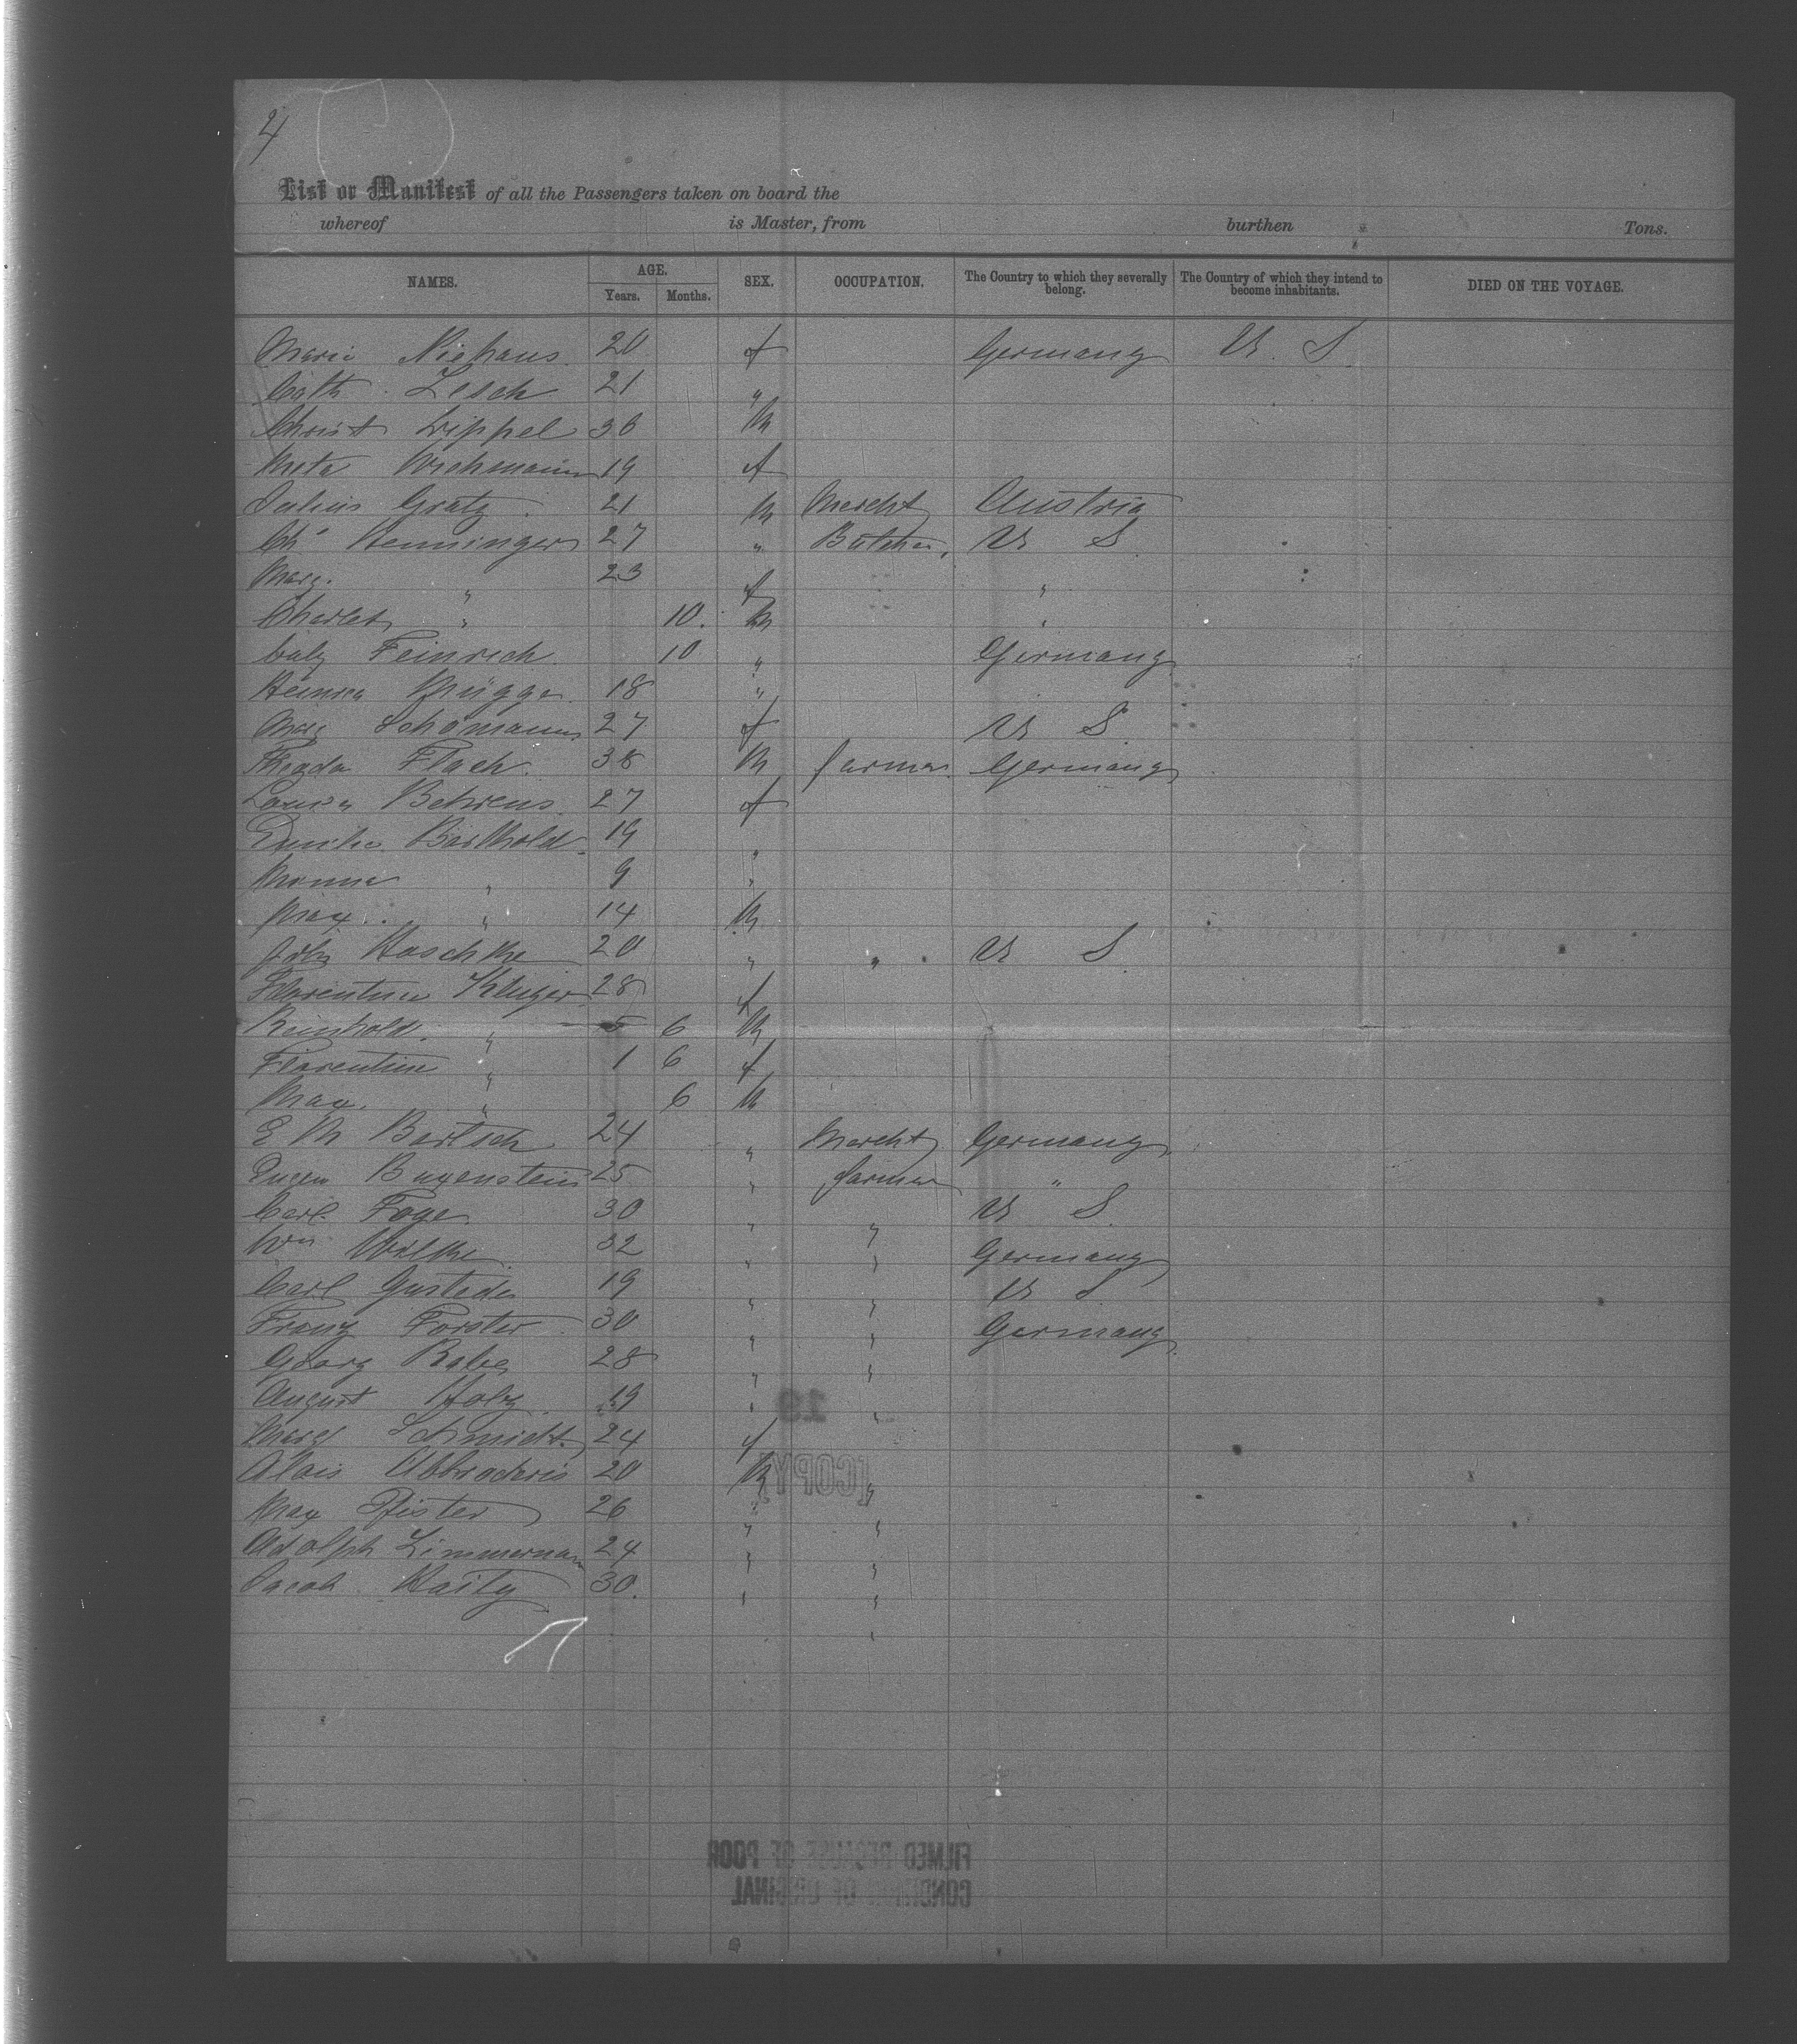 4
List or Manifest of all the Passengers taken on board the
whereof is Master, from burthen Tons.
NAMES. AGE. Years. Months. SEX. OCCUPATION. The Country to which they severally belong. The Country of which they intend to become inhabitants. DIED ON THE VOYAGE.
Marie Niehaus 20 f Germany U. S
Cath. Lesch 21 "
Christ Lippel 36 M
Meta Wichmann 19 f
Julius Gratz 21 M Mercht Austria
Ch Henninger 27 " Butcher U S
Marg. " 23 f "
Charles " 10. M "
Feinrich 10 " Germany
Brügge 18 "
Marg Schomann 27 f U S.
Flach 38 M farmer Germany
Louisa Behrens 27 f
Emilie Barthold 19 "
" 9 "
Max. " 14 M
Haschke 20 " " U S.
Florentine Kluger 28 f
Reinhold. " 5 6 M
Florentine " 1 6 f
Max. " 6 M
E M Bartsch 24 " Mercht Germany
Eugen Buxenstein 25 " farmer "
Carl Foge 30 " " U S.
Wm Wilke 32 " " Germany
Carl Gustede 19 " " U S
Franz Forster 30 " " Germany
Georg Rabe 28 " "
August Holz 19 " "
Marg Schmidt 24 f
Alois Abbrederis 20 M "
Max Pfister 26 " "
Adolph Zimmerman 24 " "
Jacob 30. " "
"
19
[COPY]
FILMED BECAUSE OF POOR
CONDITION OF ORIGINAL